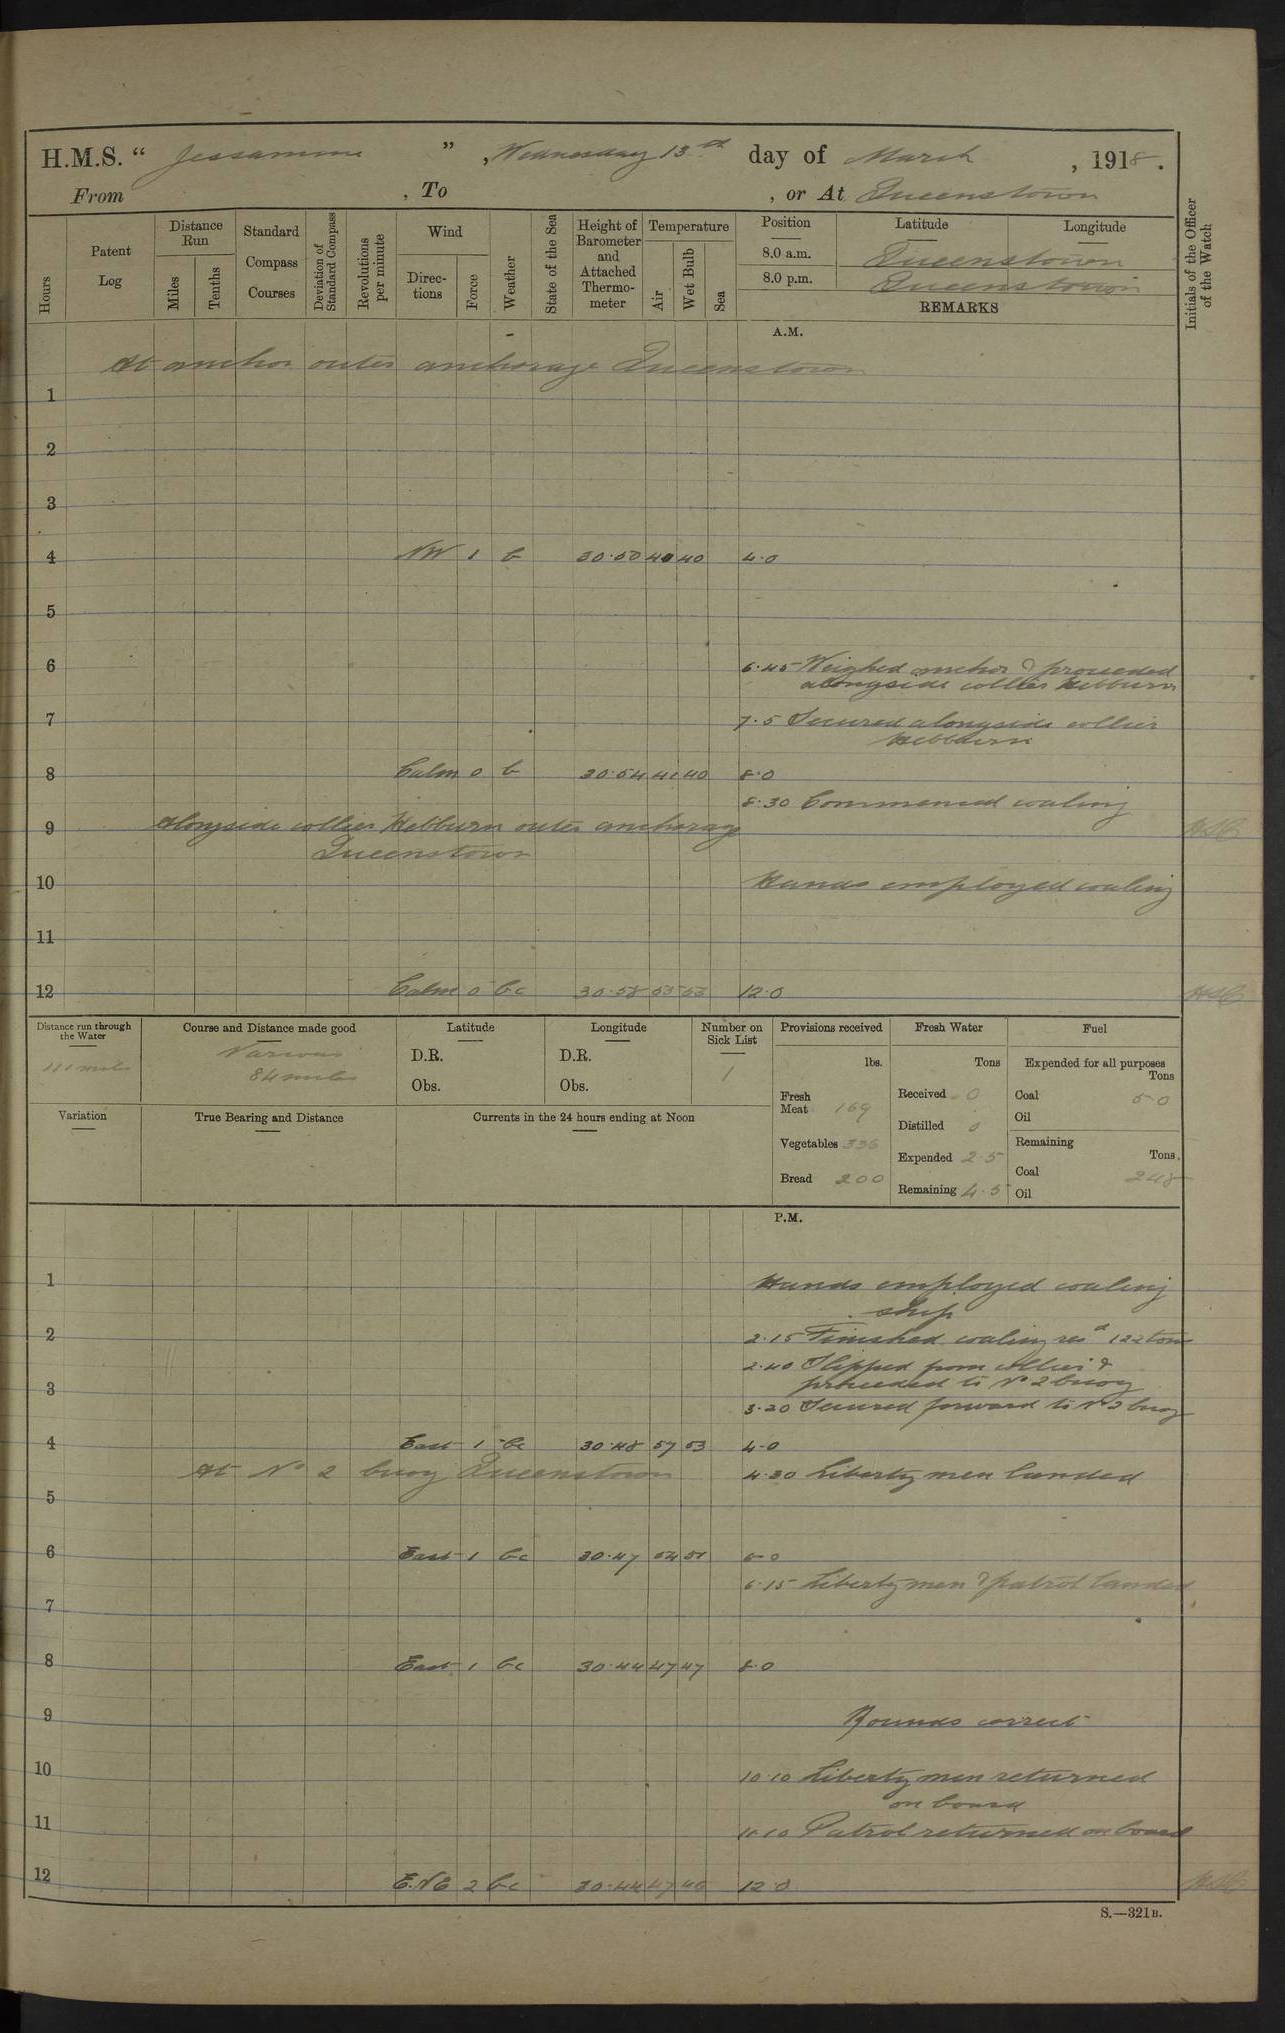 H.M.S. “ Jessamine ” , Wednesday 13th day of March , 1918.
From , To , or At Queenstown
Hours
Patent Log
Distance Run
Miles
Tenths
Standard Compass Courses
Deviation of Standard Compass
Revolutions per minute
Wind
Directions
Force
Weather
State of the Sea
Height of Barometer and Attached Thermometer
Temperature
Air
Wet Bulb
Sea
Position Latitude Longitude
8.0 a.m. Queenstown
8.0 p.m. Queenstown
REMARKS
Initials of the Officer of the Watch
A.M.
At anchor outer anchorage Queenstown
1
2
3
4 NW 1 b 30.50 40 40 4.0
5
6 6.45 Weighed anchor & proceeded
alongside collier Hebburn
7 7.5 Secured alongside collier
Hebburn
8 Calm 0 b 30.54 41 40 8.0
8.30 Commenced coaling
9 Alongside collier Hebburn outer anchorage
Queenstown
10 Hands employed coaling
11
12 Calm 0 bc 30.58 53 53 12.0
Distance run through the Water
111 miles
Course and Distance made good
Various
84 miles
Latitude
D.R.
Obs.
Longitude
D.R.
Obs.
Number on Sick List
1
Variation
True Bearing and Distance
Currents in the 24 hours ending at Noon
Provisions received
lbs.
Fresh Meat 169
Vegetables 336
Bread 200
Fresh Water
Tons
Received 0
Distilled 0
Expended 2.5
Remaining 4.5
Fuel
Expended for all purposes
Tons
Coal 50
Oil
Remaining
Tons.
Coal 248
Oil
P.M.
1 Hands employed coaling
ship
2 2.15 Finished coaling recd 122 tons
2.40 Slipped from collier &
3 proceeded to No 2 buoy
3.20 Secured forward to No 2 buoy
4 East 1 bc 30.48 57 53 4.0
At No 2 buoy Queenstown 4.30 Liberty men landed
5
6 East 1 bc 30.47 54 51 6.0
6.15 Liberty men & patrol landed
7
8 East 1 bc 30.44 47 47 8.0
9 Rounds correct
10 10.10 Liberty men returned
on board
11 11.10 Patrol returned on board
12 E.NE 2 bc 30.44 47 46 12.0
S.—321B.